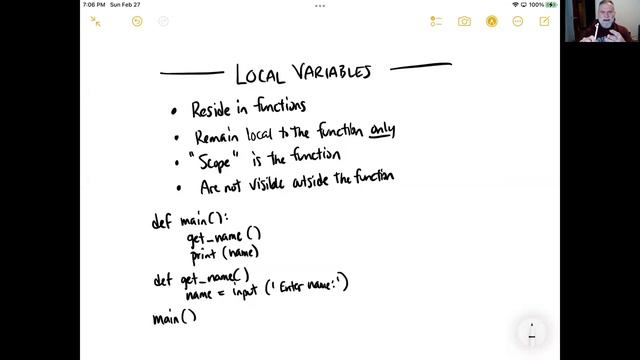 7:06 PM Sun Feb 27
100%
LOCAL VARIABLES
• Reside in functions
• Remain local to the function only
• "Scope" is the function
• Are not visible outside the function
def main():
get_name()
print (name)
def get_name()
name = input ('Enter name:')
main()